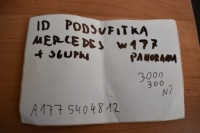 ID PODSUFITKA
MERCEDES W177
+ SŁUPKI PANORAMA
3000
300
A1775404812